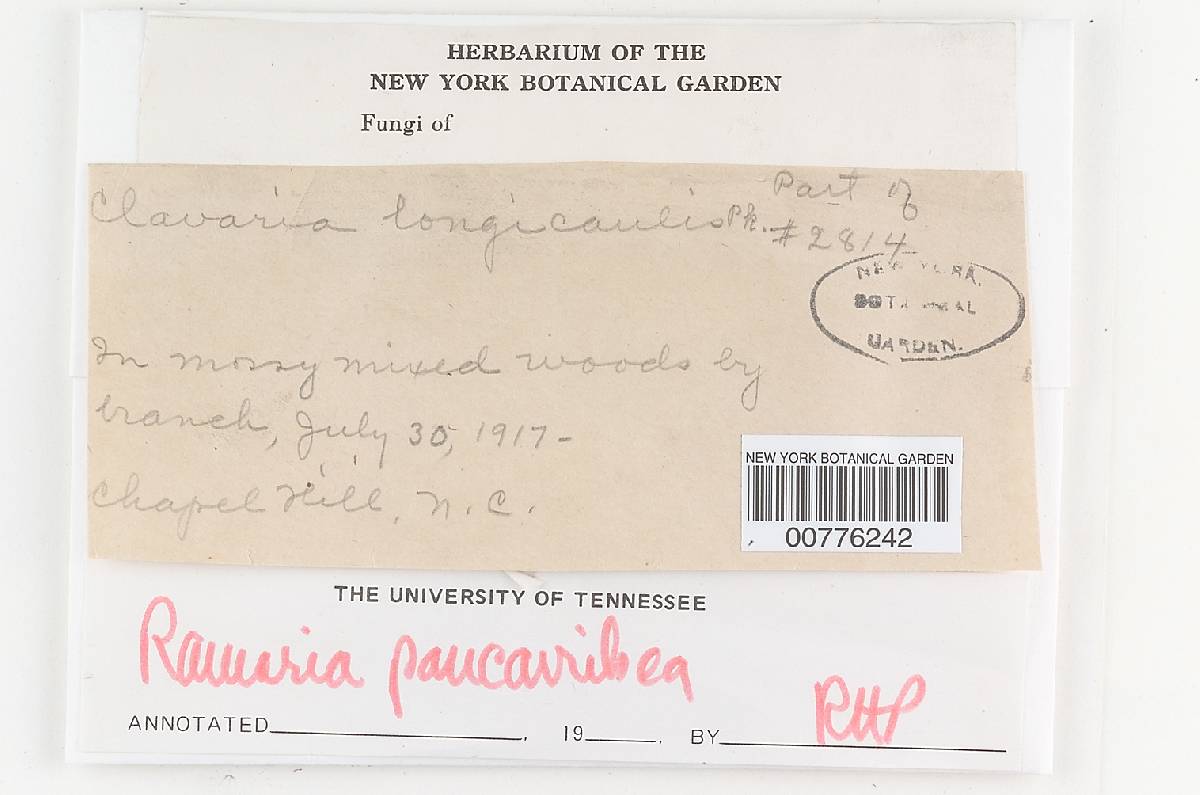 HERBARIUM OF THE
NEW YORK BOTANICAL GARDEN
Fungi of
Clavaria longicaulis Pk. Part of
#2814
NEW YORK
BOTANICAL
GARDEN.
In mossy mixed woods by
branch, July 30, 1917-
Chapel Hill, N.C.
NEW YORK BOTANICAL GARDEN
00776242
THE UNIVERSITY OF TENNESSEE
Ramaria
ANNOTATED____, 19____. BY RHP